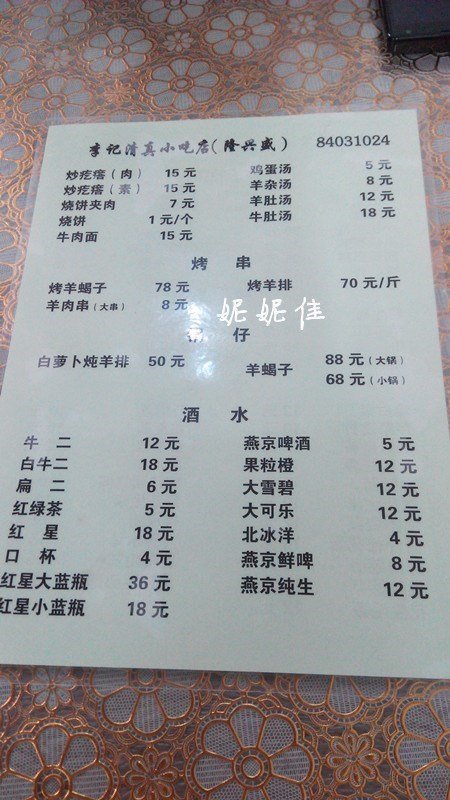 李记清真小吃店(隆兴盛) 84031024
炒疙瘩(肉) 15 元 鸡蛋汤 5 元
炒疙瘩(素) 15 元 羊杂汤 8 元
烧饼夹肉 7 元 羊肚汤 12 元
烧饼 1 元/个 牛肚汤 18 元
牛肉面 15 元
烤 串
烤羊蝎子 78 元 烤羊排 70 元/斤
羊肉串(大串) 8 元
妮妮佳
仔
白萝卜炖羊排 50 元 羊蝎子 88 元(大锅)
68 元(小锅)
酒 水
牛 二 12 元 燕京啤酒 5 元
白牛二 18 元 果粒橙 12 元
扁 二 6 元 大雪碧 12 元
红绿茶 5 元 大可乐 12 元
红 星 18 元 北冰洋 4 元
口 杯 4 元 燕京鲜啤 8 元
红星大蓝瓶 36 元 燕京纯生 12 元
红星小蓝瓶 18 元